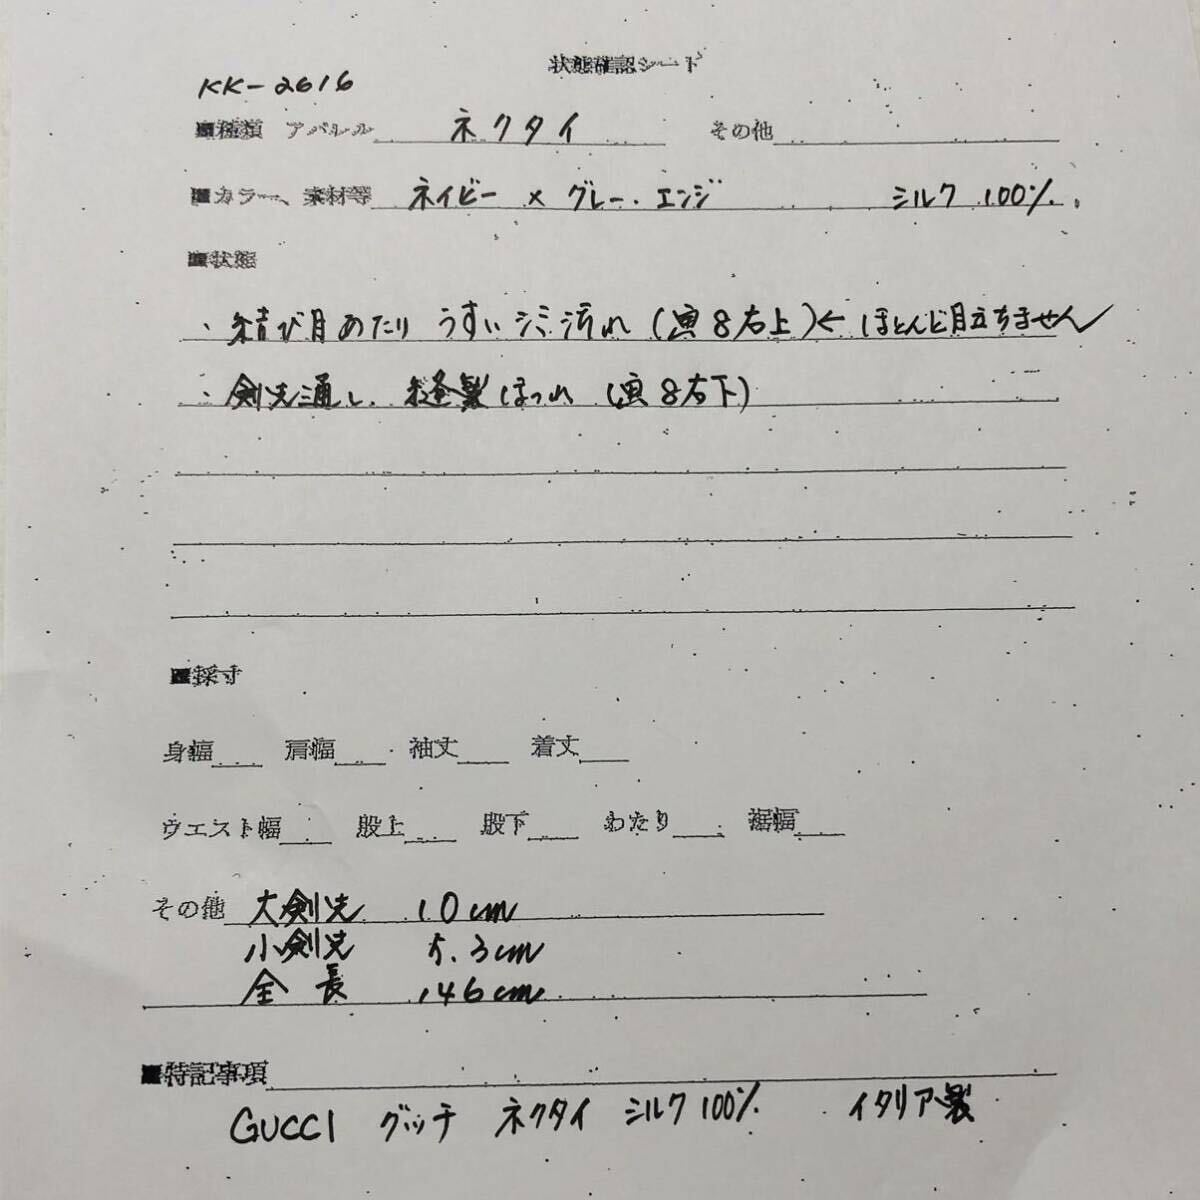 状態確認シート
KK-2616
■種類 アパレル ネクタイ その他
■カラー、素材等 ネイビー × グレー．エンジ シルク 100%．
■状態
・結び目あたり うすいシミ汚れ (画8右上)← ほとんど目立ちません
・剣先通し．縫製ほつれ (画8右下)
■採寸
身幅 肩幅 袖丈 着丈
ウエスト幅 股上 股下 わたり 裾幅
その他 大剣先 10cm
小剣先 5.3cm
全長 146cm
■特記事項
GUCCI グッチ ネクタイ シルク100% イタリア製